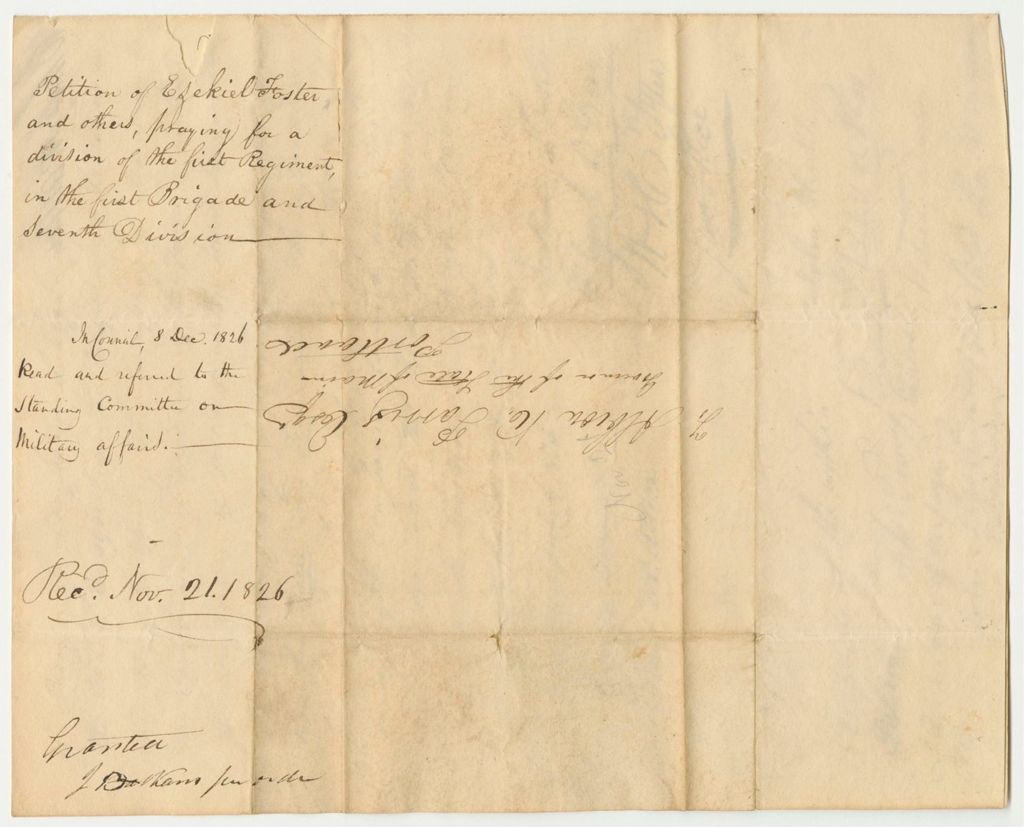 Petition of Ezekiel Foster
and others, praying for a
division of the first Regiment,
in the first Brigade and
Seventh Division
In Council, 8 Dec. 1826
Read and referred to the
Standing Committee on
Military affairs.
Recd. Nov. 21. 1826
Granted
J per order
To Albion K. Parris Esqr
Governor of the State of Maine
Portland